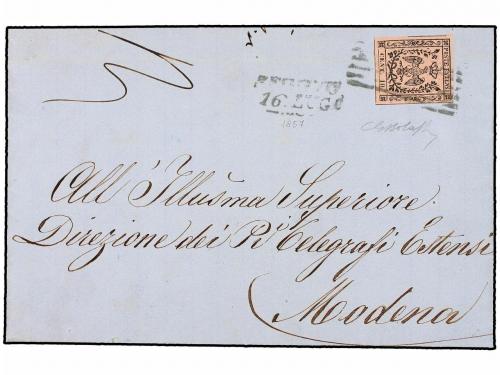 REGGIO
16 LUGO
1857
All' Illusma Superiore
Direzione dei Ri Telegrafi Estensi
Modena